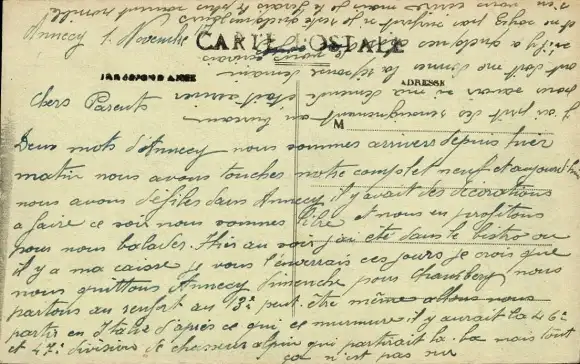 Annecy 1 Novembre
CARTE POSTALE
CORRESPONDANCE
ADRESSE
M
Chers Parents
Deux mots d'Annecy nous sommes arrivés depuis hier
matin nous avons touchés notre complet neuf et aujourd'hui
nous avons défilés dans Annecy il y avait des décorations
a faire ce soir nous sommes libre et nous en profitons
pour nous balader. Hier au soir j'ai été dans le bistro ou
il y a ma caisse je vous l'enverrais ces jours je crois que
nous quittons Annecy dimanche pour Chambery, nous
partons au renfort au 13e peut être même allons nous
partir en Italie d'après ce qui ce murmure il y aurait la 46e
et 47e division de chasseurs alpin qui partirait la bas mais tout
ça n'est pas sur
j'ai prit des renseignements au bureau
pour savoir si ma demande etait arrivé
ont doit me donner la réponse demain